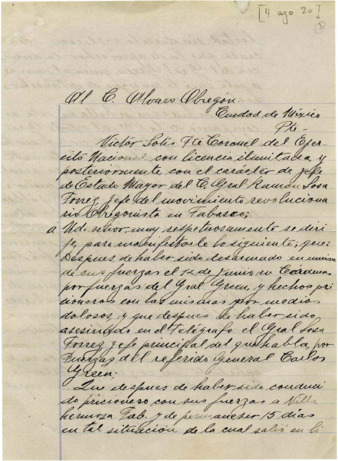 [4 ago 20]
Al C. Alvaro Obregón
Ciudad de México
Pte.
Victor Sotis Tte Coronel del Ejer-
cito Nacional con licencia ilimitada y
posteriormente con el carácter de jefe
de Estado Mayor del C. Gral Ramón Sosa
Torres, jefe del movimiento revoluciona
rio Obregonista en Tabasco;
a Ud. señor, muy respetuosamente se diri
je, para manifestarle lo siguiente, que:
Despues de haber sido desarmado en union
de sus fuerzas el 12 de Junio en Cardenas
por fuerzas del Gral Green, y hechos pri
cioneros con las mismas por medios
dolosos, y que despues de haber sido
asesinado en el Telégrafo el Gral Sosa
Torrez, jefe principal del que habla, por
fuerzas del referido General Carlos
Green;
Que despues de haber sido conduci
do pricionero con sus fuerzas a Villa
hermosa Tab. y de permanecer 15 días
en tal situación de la cual salió en li